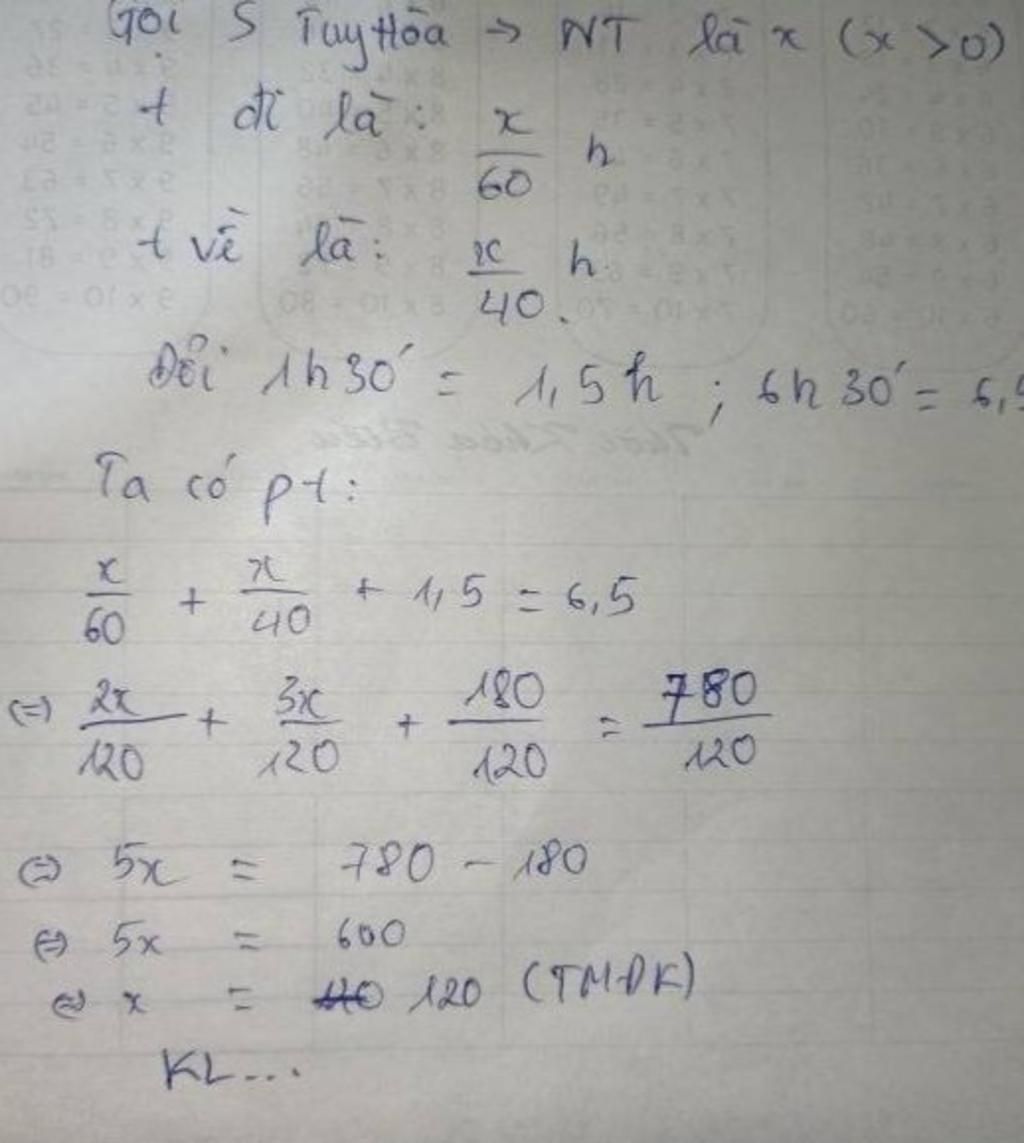 Gọi S Tuy Hòa → NT là x (x > 0)
t đi là: x/60 h
t về là: x/40 h.
Đổi 1h30' = 1,5h ; 6h30' = 6,5
Ta có pt:
x/60 + x/40 + 1,5 = 6,5
(=) 2x/120 + 3x/120 + 180/120 = 780/120
(=) 5x = 780 - 180
(=) 5x = 600
(=) x = 120 (TMĐK)
KL...